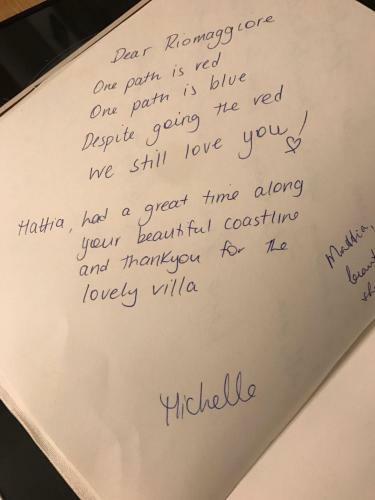 Dear Riomaggiore
One path is red
One path is blue
Despite going the red
we still love you!
Mattia, had a great time along
your beautiful coastline
and thankyou for the
lovely villa
Michelle
Mattia,